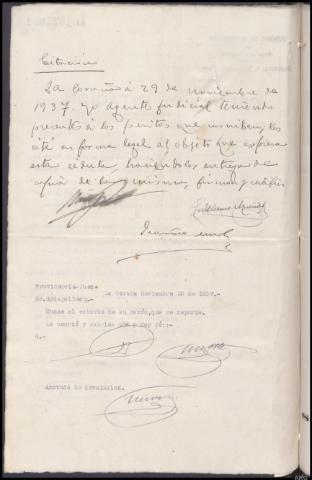 Citación
La Coruña á 29 de noviembre de
1937. yo Agente Judicial teniendo
presente á los peritos que suscriben, les
cité en forma legal al objeto que expresa
esta cédula haciéndoles entrega de
copia de la misma, firman y certifico
Guillermo
Francisco
Providencia-Juez
Sr. La Coruña Noviembre de 1937.
Unase el exhorto de su razón, que se reporta.
Lo acordó y rubrica SSª y doy fé:-
Anotada la devolución.